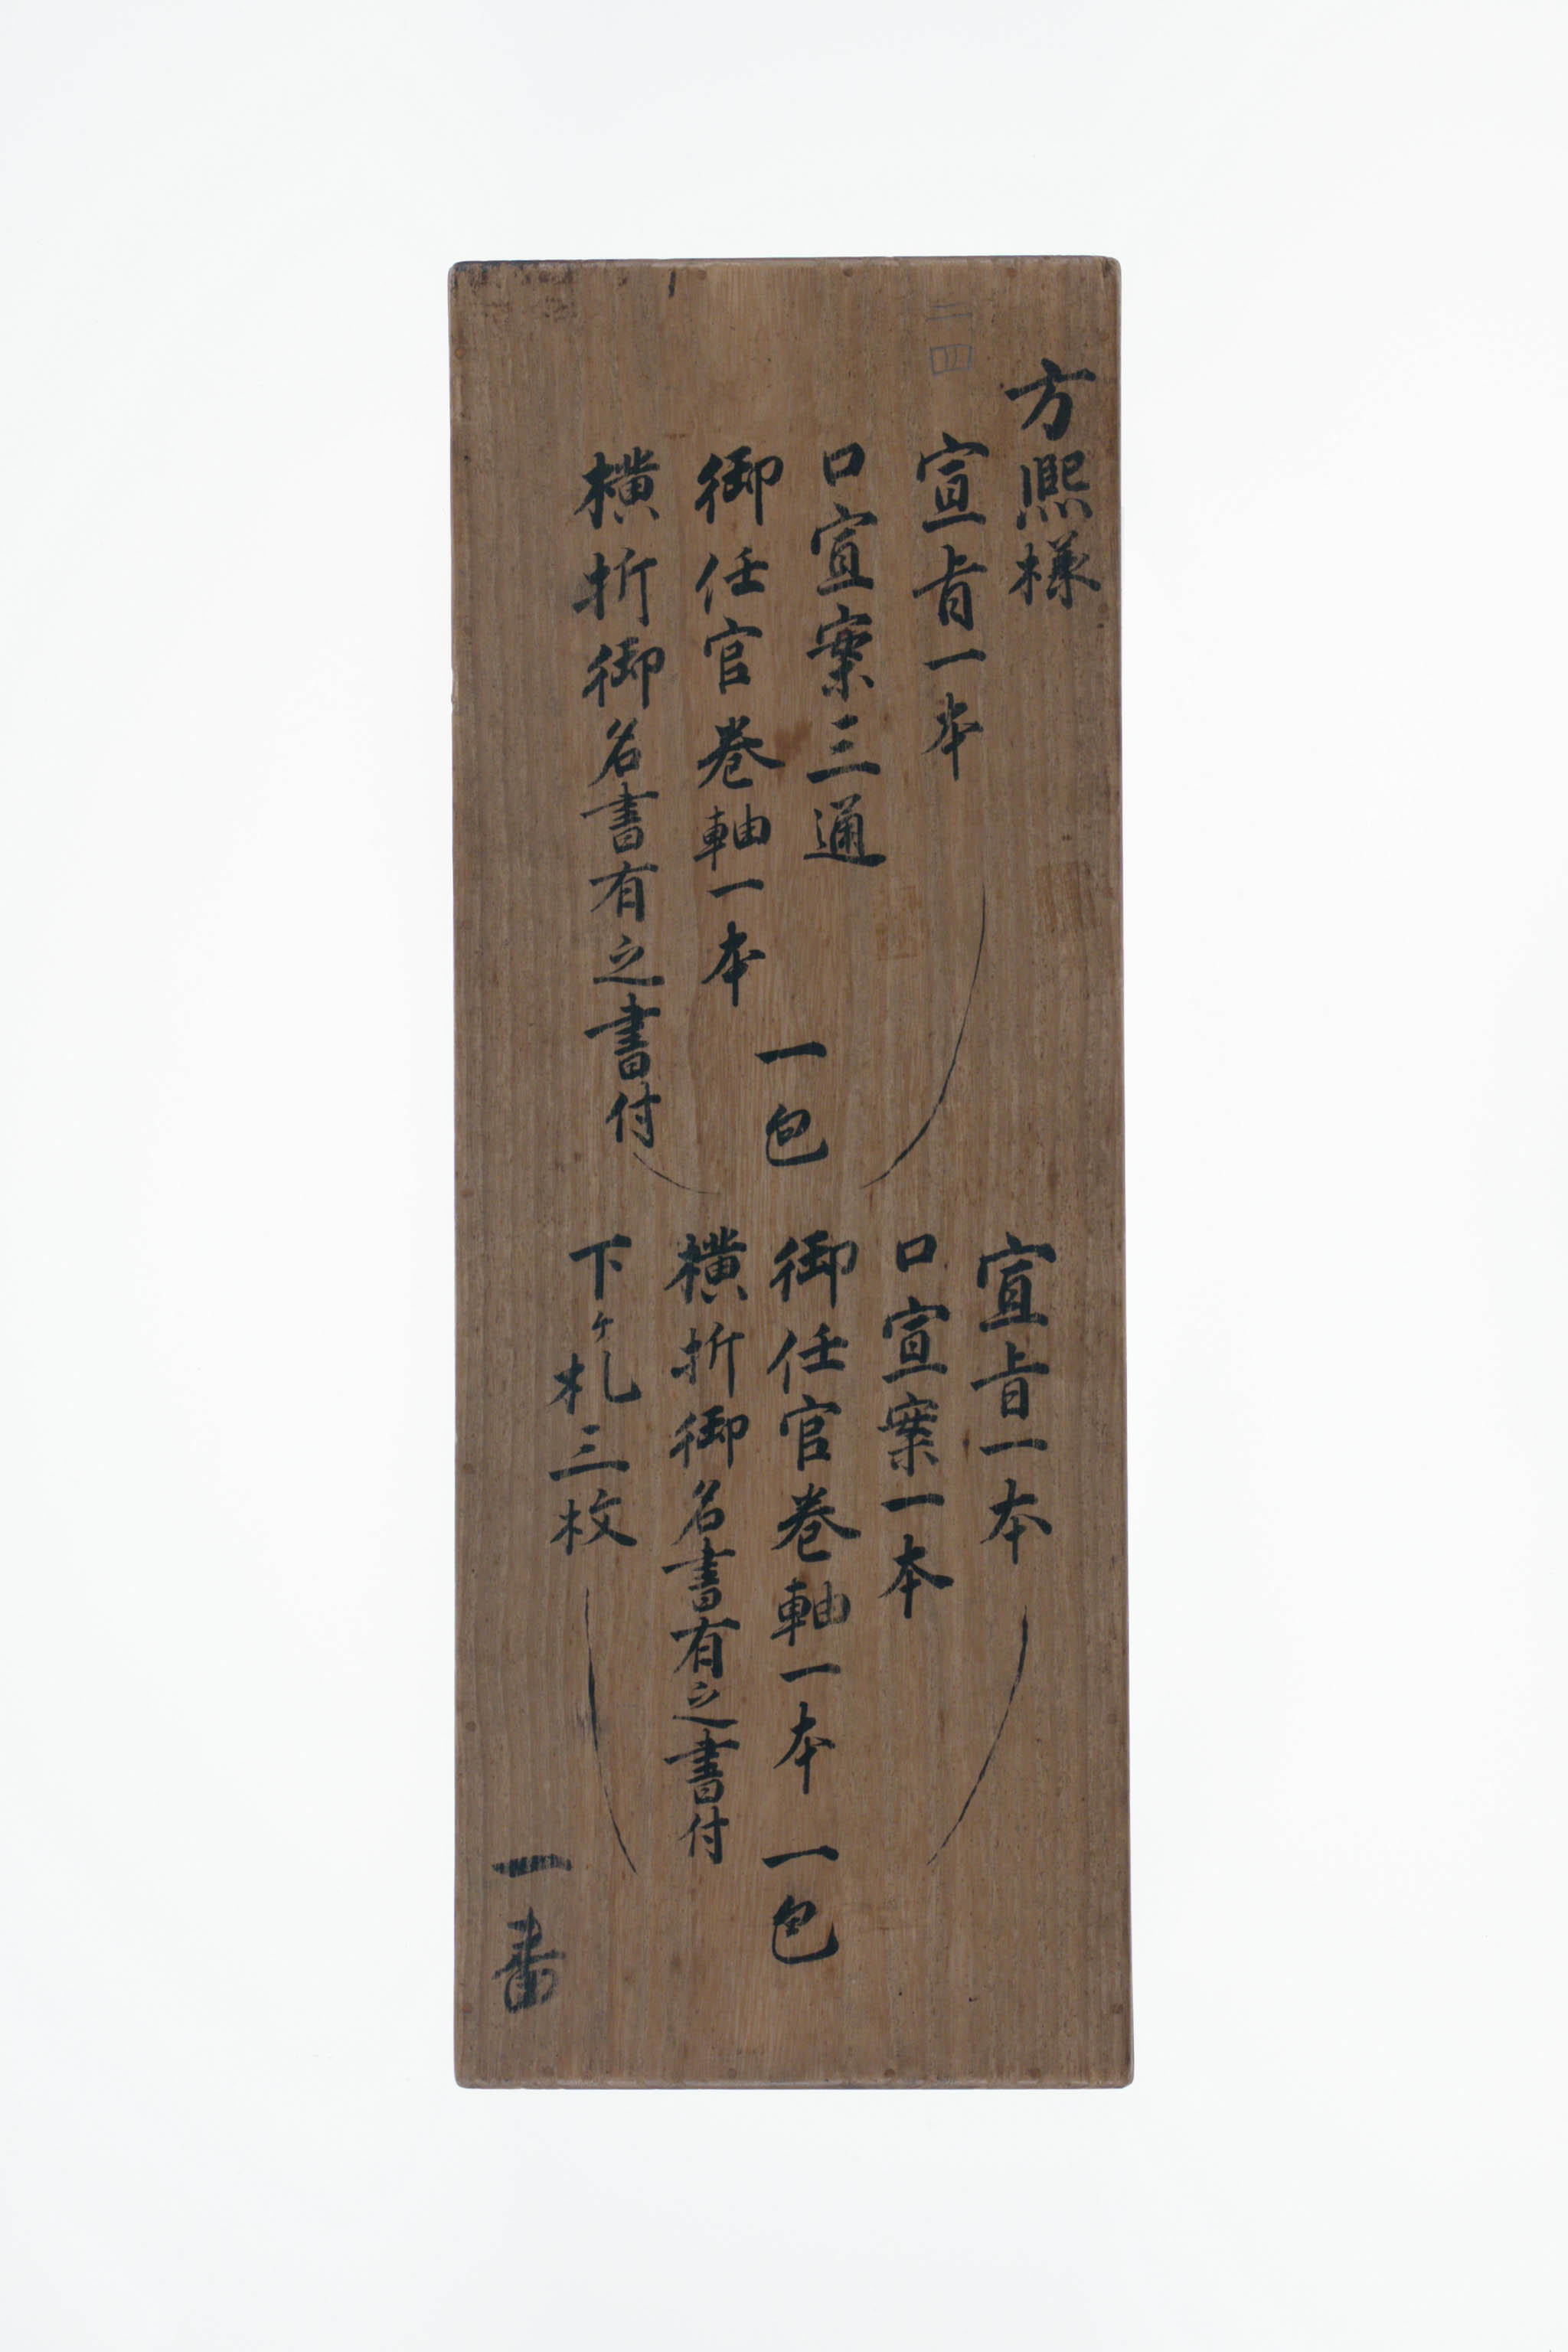 方熙様
二四
宣旨一本
口宣案三通
御任官巻軸一本
横折御名書有之書付
一包
宣旨一本
口宣案一本
御任官巻軸一本
横折御名書有之書付
下ヶ札三枚
一包
一番